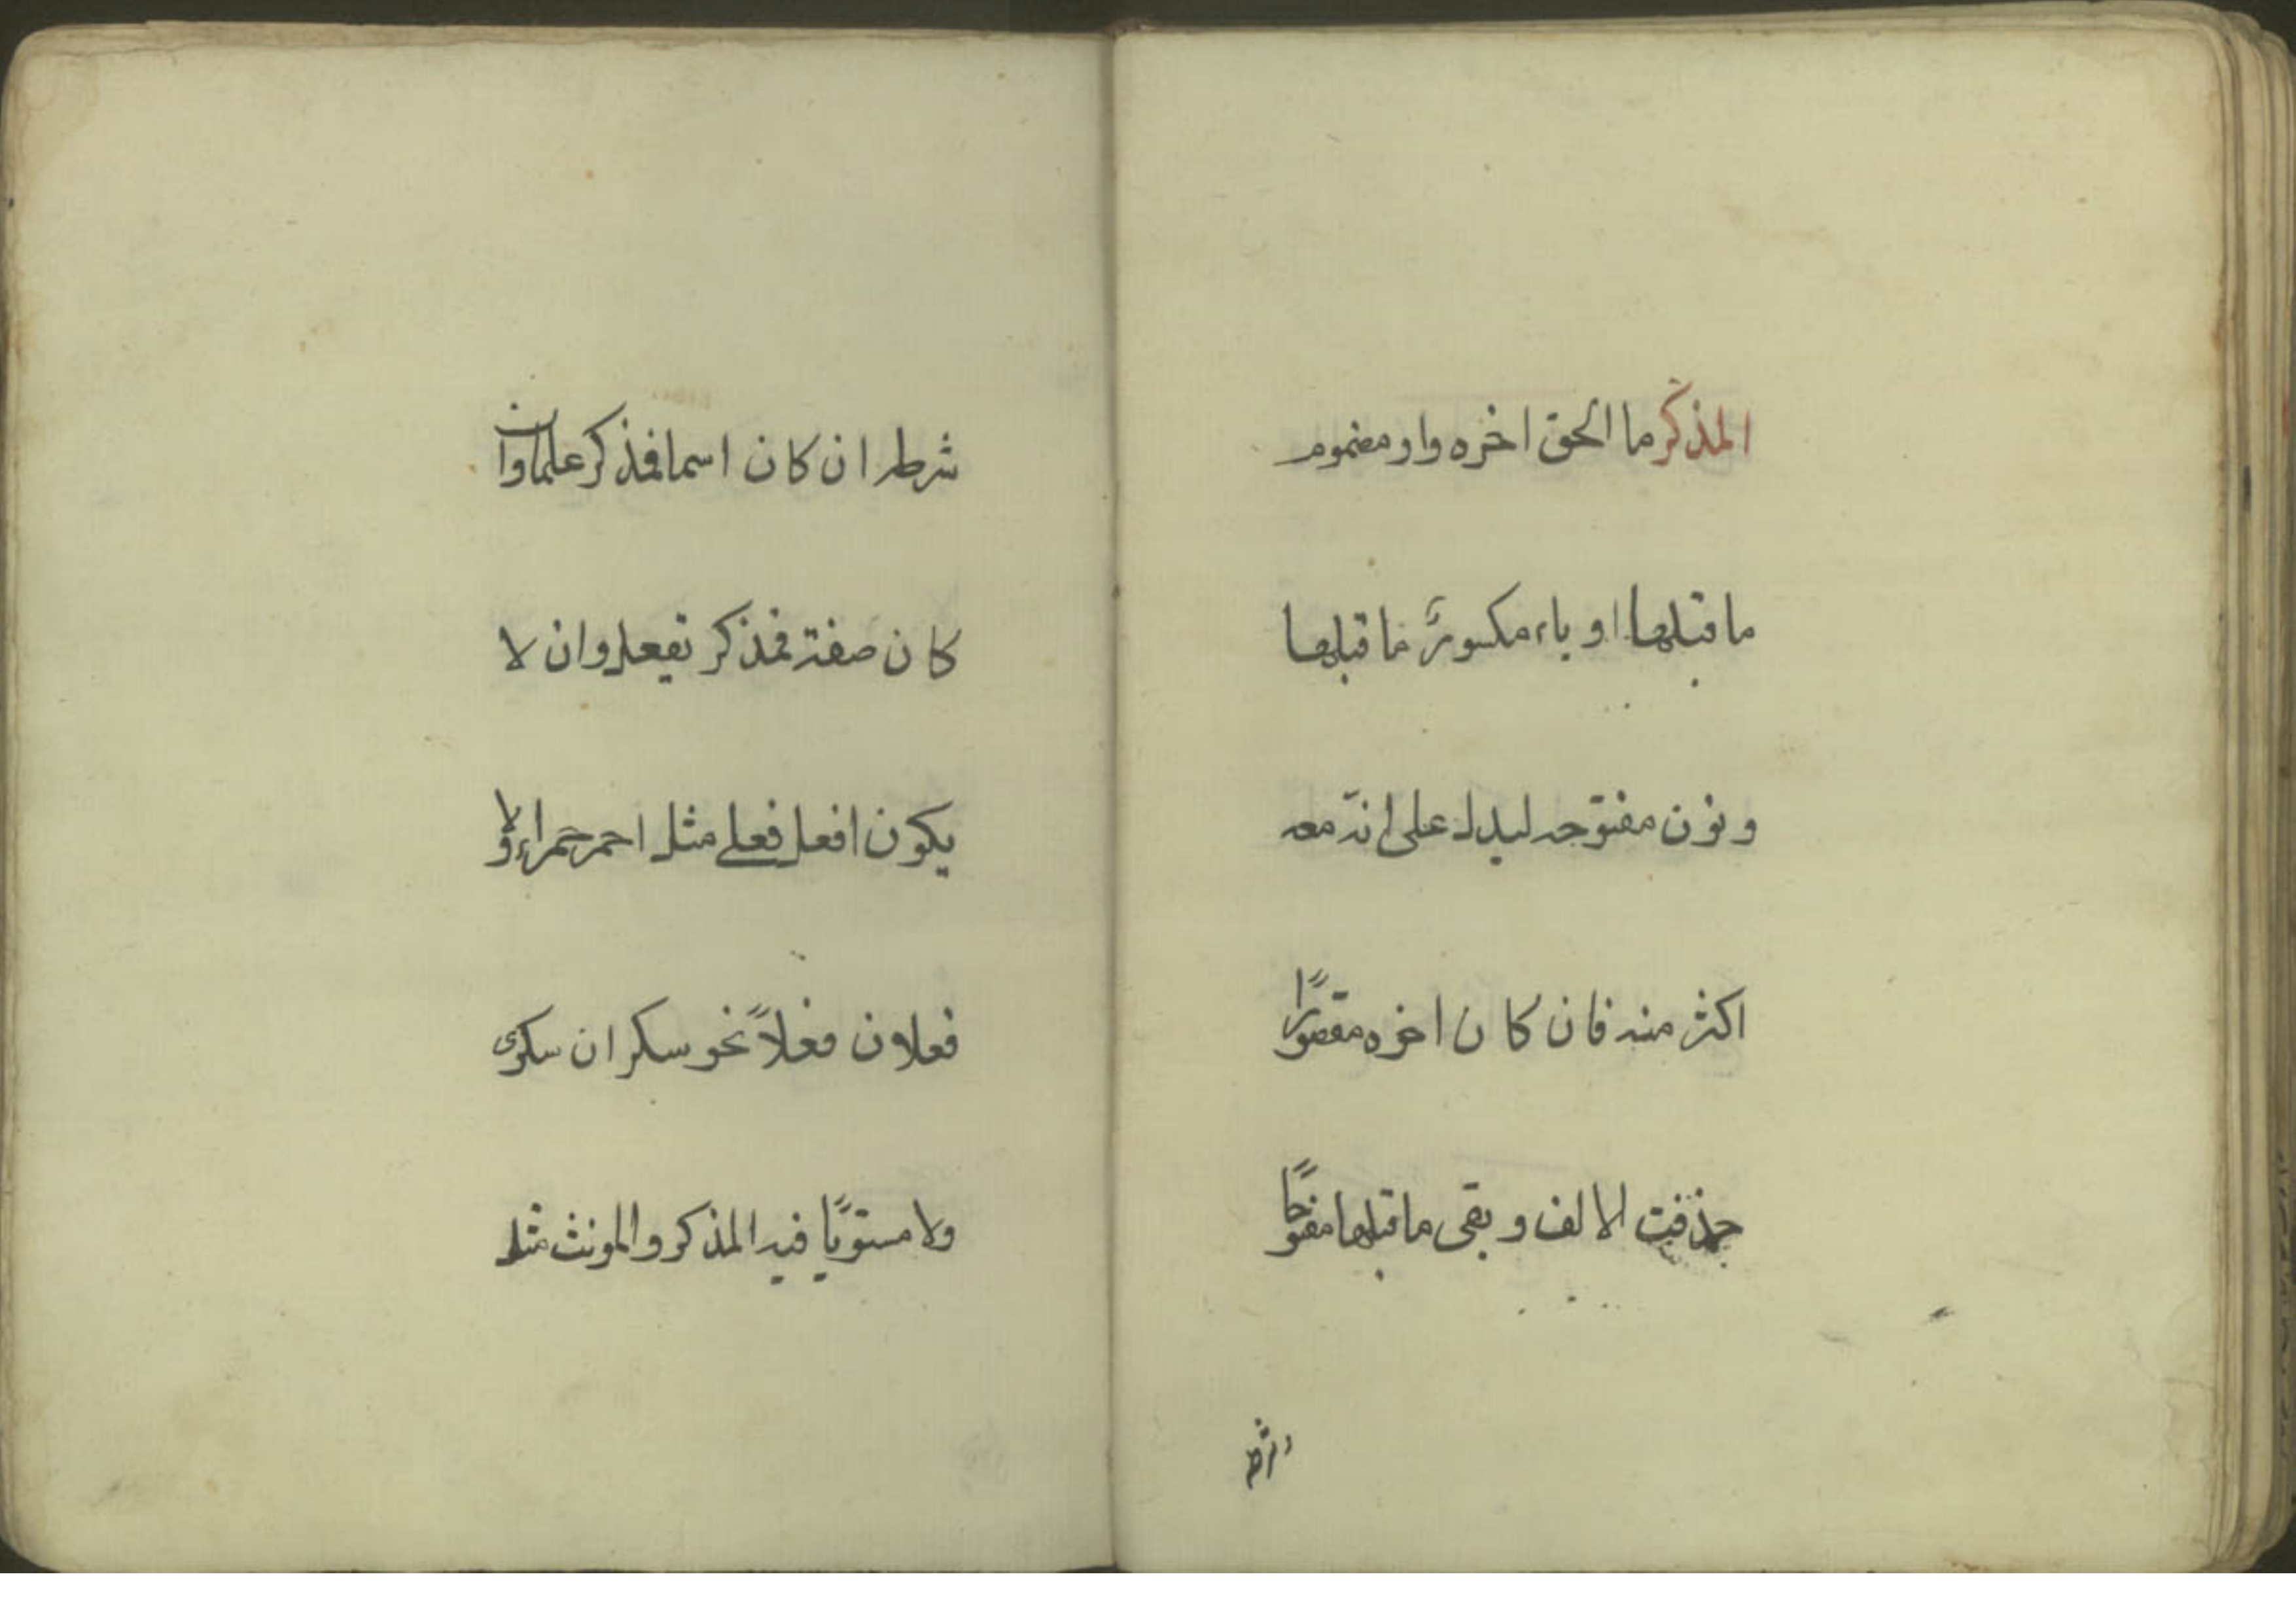 المذكر ما الحق اخره واو مضموم
ما قبلها او ياء مكسورة ما قبلها
و نون مفتوحه ليدل على انه معه
اكثر منه فان كان اخره مقصورًا
حذفت الالف و بقى ما قبلها مفتوحًا
شرطه ان كان اسما فمذكر علم وان
كان صفة فمذكر يعقل وان لا
يكون افعل فعلى مثل احمر حمراء ولا
فعلان فعلاً نحو سكران سكرى
ولا مستويًا فيه المذكر والمونث مثل